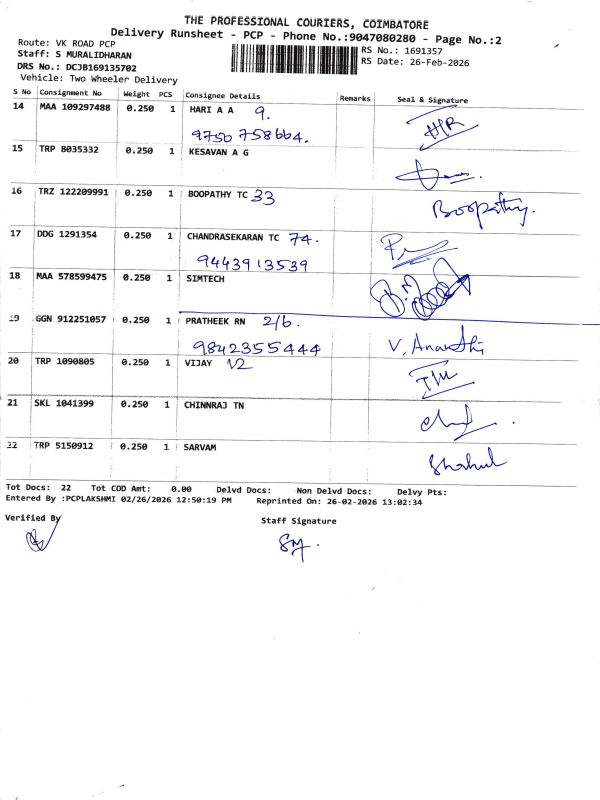 THE PROFESSIONAL COURIERS, COIMBATORE
Delivery Runsheet - PCP - Phone No.:9047080280 - Page No.:2
Route: VK ROAD PCP
Staff: S MURALIDHARAN
DRS No.: DCJB169135702
Vehicle: Two Wheeler Delivery
RS No.: 1691357
RS Date: 26-Feb-2026
S No Consignment No Weight PCS Consignee Details Remarks Seal & Signature
14 MAA 109297488 0.250 1 HARI A A 9.
9750 758664.
15 TRP 8035332 0.250 1 KESAVAN A G
16 TRZ 122209991 0.250 1 BOOPATHY TC 33 Boopathy.
17 DDG 1291354 0.250 1 CHANDRASEKARAN TC 74.
9443913539
18 MAA 578599475 0.250 1 SIMTECH
19 GGN 912251057 0.250 1 PRATHEEK RN 2/6.
9842355444 V. Ananthi
20 TRP 1090805 0.250 1 VIJAY V2
21 SKL 1041399 0.250 1 CHINNRAJ TN
22 TRP 5150912 0.250 1 SARVAM Shahul
Tot Docs: 22 Tot COD Amt: 0.00 Delvd Docs: Non Delvd Docs: Delvy Pts:
Entered By :PCPLAKSHMI 02/26/2026 12:50:19 PM Reprinted On: 26-02-2026 13:02:34
Verified By Staff Signature